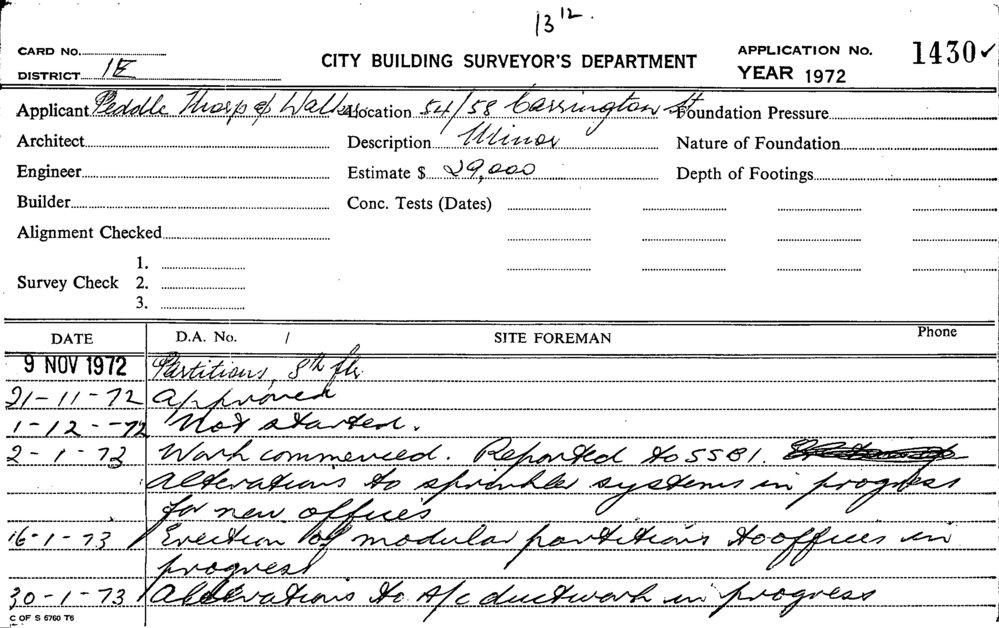 13 12.
CARD No.
DISTRICT 1E
CITY BUILDING SURVEYOR'S DEPARTMENT
APPLICATION No. 1430 ✓
YEAR 1972
Applicant Peddle Thorp & Walker Location 54/58 Carrington St Foundation Pressure
Architect Description Minor Nature of Foundation
Engineer Estimate $ 29,000 Depth of Footings
Builder Conc. Tests (Dates)
Alignment Checked
Survey Check 1.
2.
3.
DATE D.A. No. / SITE FOREMAN Phone
9 NOV 1972 Partitions, 8th flr
21-11-72 Approved
1-12-72 Not started.
2-1-73 Work commenced. Reported to SSBI.
Alterations to sprinkler systems in progress
for new offices
16-1-73 Erection of modular partitions to offices in
progress
30-1-73 Alterations to A/c ductwork in progress
C OF S 6760 T6